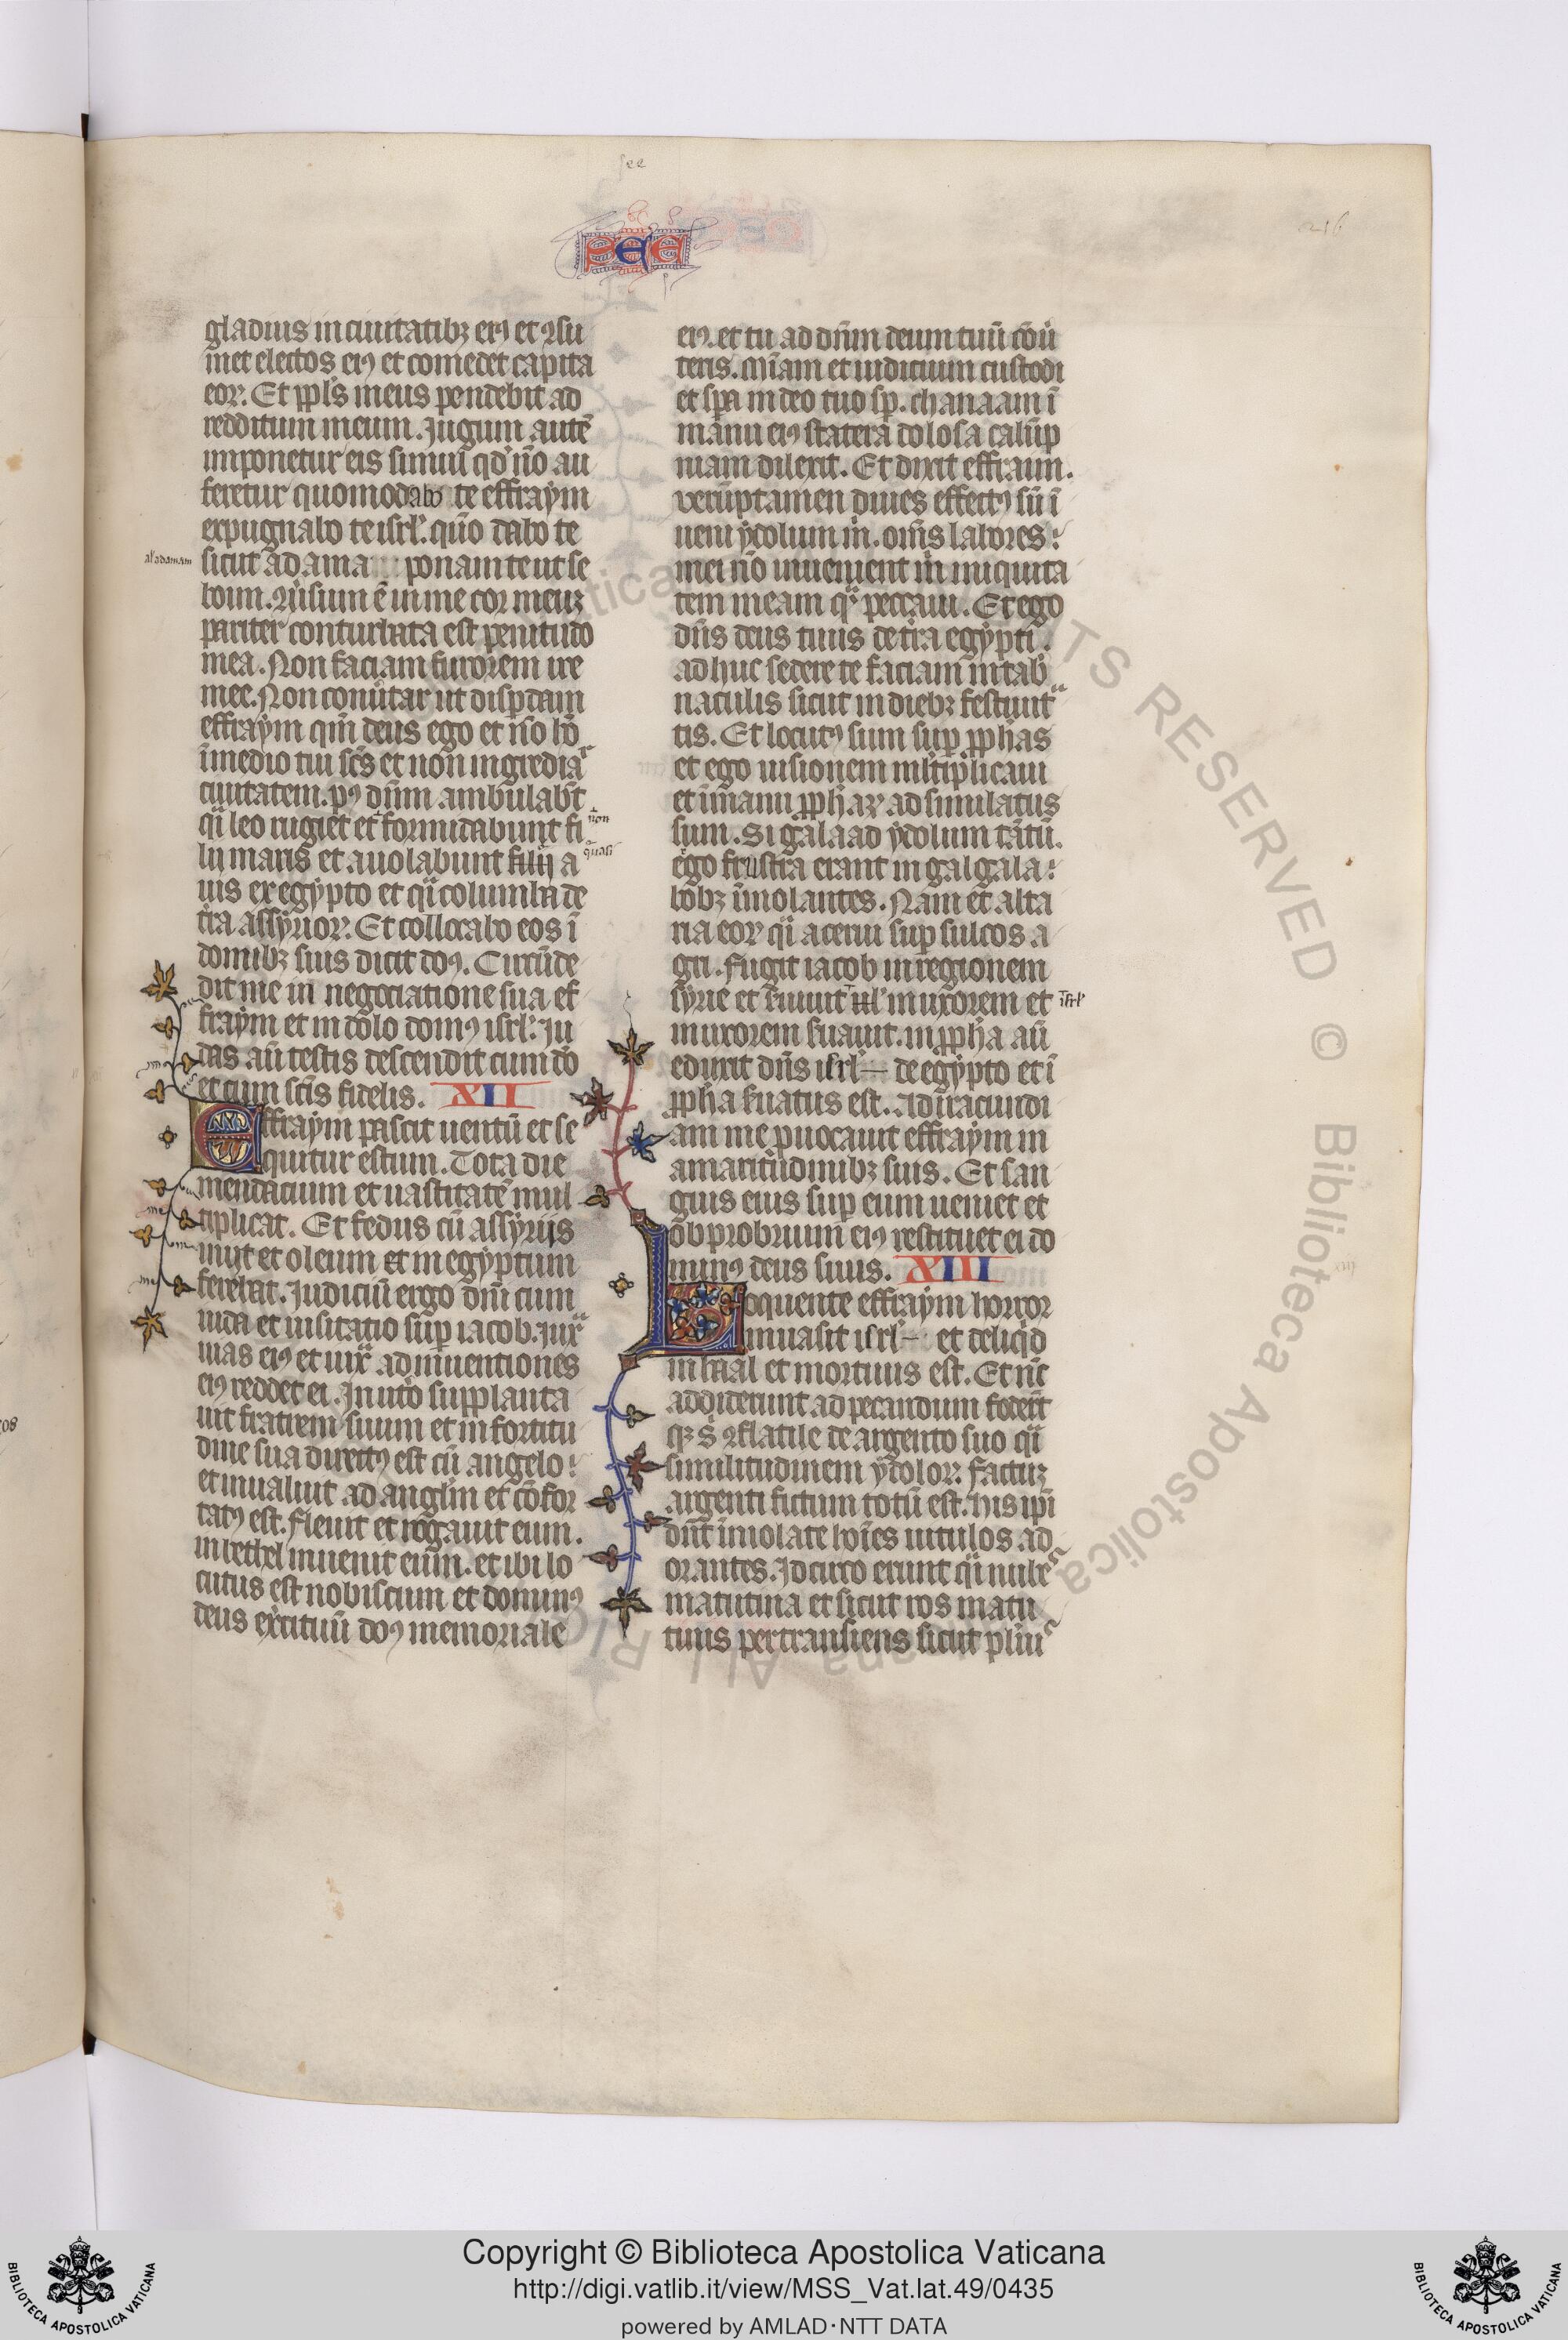 see
SEE
216
gladius in ciuitatibꝫ eiꝰ et ꝯsu
met electos eiꝰ et comedet capita
eoꝝ. Et ppl̃s meus pendebit ad
redditum meum. Jugum autẽ
imponetur eis simul qd̾ nõ au
feretur quomodo dabo te effraym
expugnabo te isrl̃. quõ dabo te
al̾ adamam
sicut adama ponam te ut se
boim. ꝯuisum ẽ in me cor meuꝫ
pariter conturbata est penitudo
mea. Non faciam furorem ire
mee. Non conũtar ut disꝑdam
effraym qm̃ deus ego et nõ hõ
ĩ medio tui sc̃s et non ingrediar
ciuitatem. pꝰ dñm ambulabt̃
qͥ leo rugiet et formidabunt fi
lii maris et auolabunt filii a
quasi
uis ex egypto et qͥ columba de
tr̃a assyrioꝝ. Et collocabo eos ĩ
domibꝫ suis dicit doꝰ. Circũde
dit me in negociatione sua ef
fraym et in dolo domꝰ isrl̃. Ju
das aũ testis descendit cum dõ
et cum sc̃is fidelis. XII
Effraym pascit uentũ et se
quitur estum. Tota die
mendacium et uastitatẽ mul
tiplicat. Et fedus cũ assyriis
iniit et oleum et in egyptum
ferebat. Judiciũ ergo dñi cum
iuda et uisitatio sup̱ iacob. Jux
uias eiꝰ et iux̾ adinuentiones
eiꝰ reddet ei. In utõ supplanta
uit fratrem suum et in fortitu
dine sua directꝰ est cũ angelo:
et inualuit ad anglm̃ et cõfor
tatꝰ est. fleuit et rogauit eum.
in bethel inuenit eum. et ibi lo
cutus est nobiscum et dominꝰ
deus ex̾cituũ doꝰ memoriale
eiꝰ. et tu ad dñm deum tuũ cõũ
teris. Mĩam et iudicium custodi
et spa in deo tuo sp̱. chanaam ĩ
manu eiꝰ statera dolosa calũp
niam dilexit. Et dixit effraim.
verũptamen diues effectꝰ sũ ĩ
ueni ydolum m̾. oms̃ labores:
mei nõ inuenient m̾ iniquita
tem meam qͣ peccaui. Et ego
dñs deus tuus de tr̃a egypti.
ad huc sedere te faciam in tab̾
naculis sicut in diebꝫ festiuit
tis. Et locutꝰ sum sup̱ pphas
et ego uisionem ml̾tiplicaui
et ĩ manu pph̾aꝝ adsimilatus
sum. Si galaad ydolum tãtũ.
ego frustra erant in galgala:
bobꝫ ĩmolantes. Nam et alta
ria eoꝝ qͥ acerui sup̱ sulcos a
gri. fugit iacob in regionem
syrie et s̾uiuit in uxorem et
isrl̾
in uxorem s̾uauit. in ppha aũ
eduxit dñs isrl̃ de egypto et ĩ
ppha s̾uatus est. Ad iracundi
am me ꝓuocauit effraym in
amaritudinibꝫ suis. Et san
guis eius sup̱ eum ueniet et
obprobrium eiꝰ restituet ei do
minꝰ deus suus. XIII
Loquente effraym horror
inuasit isrl̃ et deliqͥd
in baal et mortuus est. Et nũc
addiderunt ad peccandum fecert̃
qꝫ s̾ ꝯflatile de argento suo qͥ
similitudinem ydoloꝝ. factuꝫ
argenti fictium totũ est. his ipĩ
dñt ĩmolate hoĩes uitulos ad
orantes. Idcirco erunt qͥ nubes
matutina et sicut ros matu
tinus pertransiens sicut pluis
Copyright © Biblioteca Apostolica Vaticana
http://digi.vatlib.it/view/MSS_Vat.lat.49/0435
powered by AMLAD·NTT DATA
BIBLIOTECA APOSTOLICA VATICANA
BIBLIOTECA APOSTOLICA VATICANA